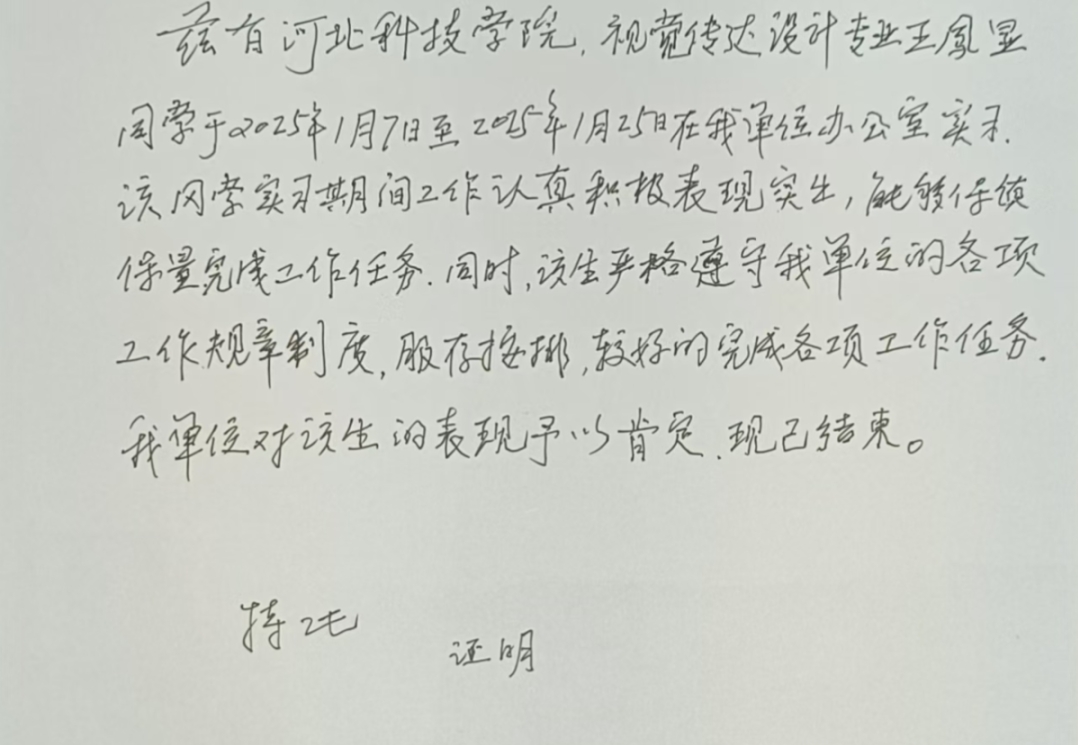 兹有河北科技学院，视觉传达设计专业王凤显
同学于2025年1月7日至2025年1月25日在我单位办公室实习.
该同学实习期间工作认真积极表现突出，能够保质
保量完成工作任务.同时，该生严格遵守我单位的各项
工作规章制度，服存按排，较好的完成各项工作任务.
我单位对该生的表现予以肯定.现已结束。
特此
证明